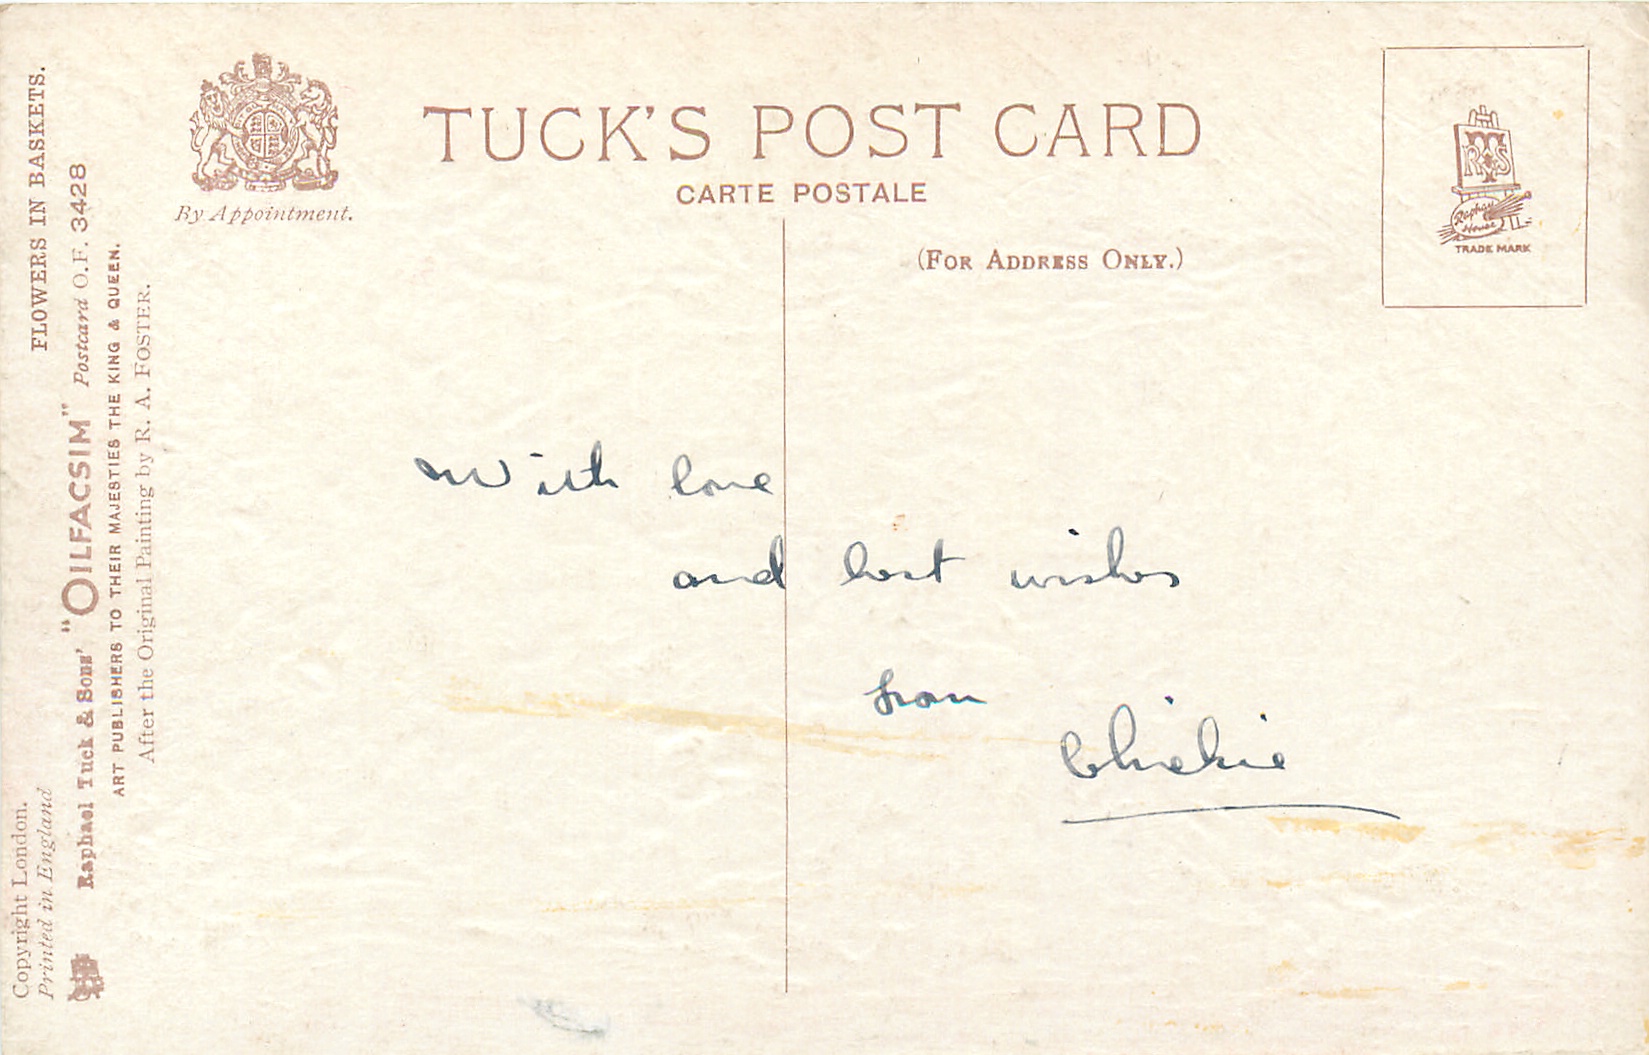 TUCK'S POST CARD
CARTE POSTALE
(FOR ADDRESS ONLY.)
By Appointment.
RTS
Raphael
House
TRADE MARK
FLOWERS IN BASKETS.
Raphael Tuck & Sons' "OILFACSIM" Postcard O.F. 3428
ART PUBLISHERS TO THEIR MAJESTIES THE KING & QUEEN.
After the Original Painting by R. A. FOSTER.
Copyright London.
Printed in England
With love
and best wishes
from
Chickie